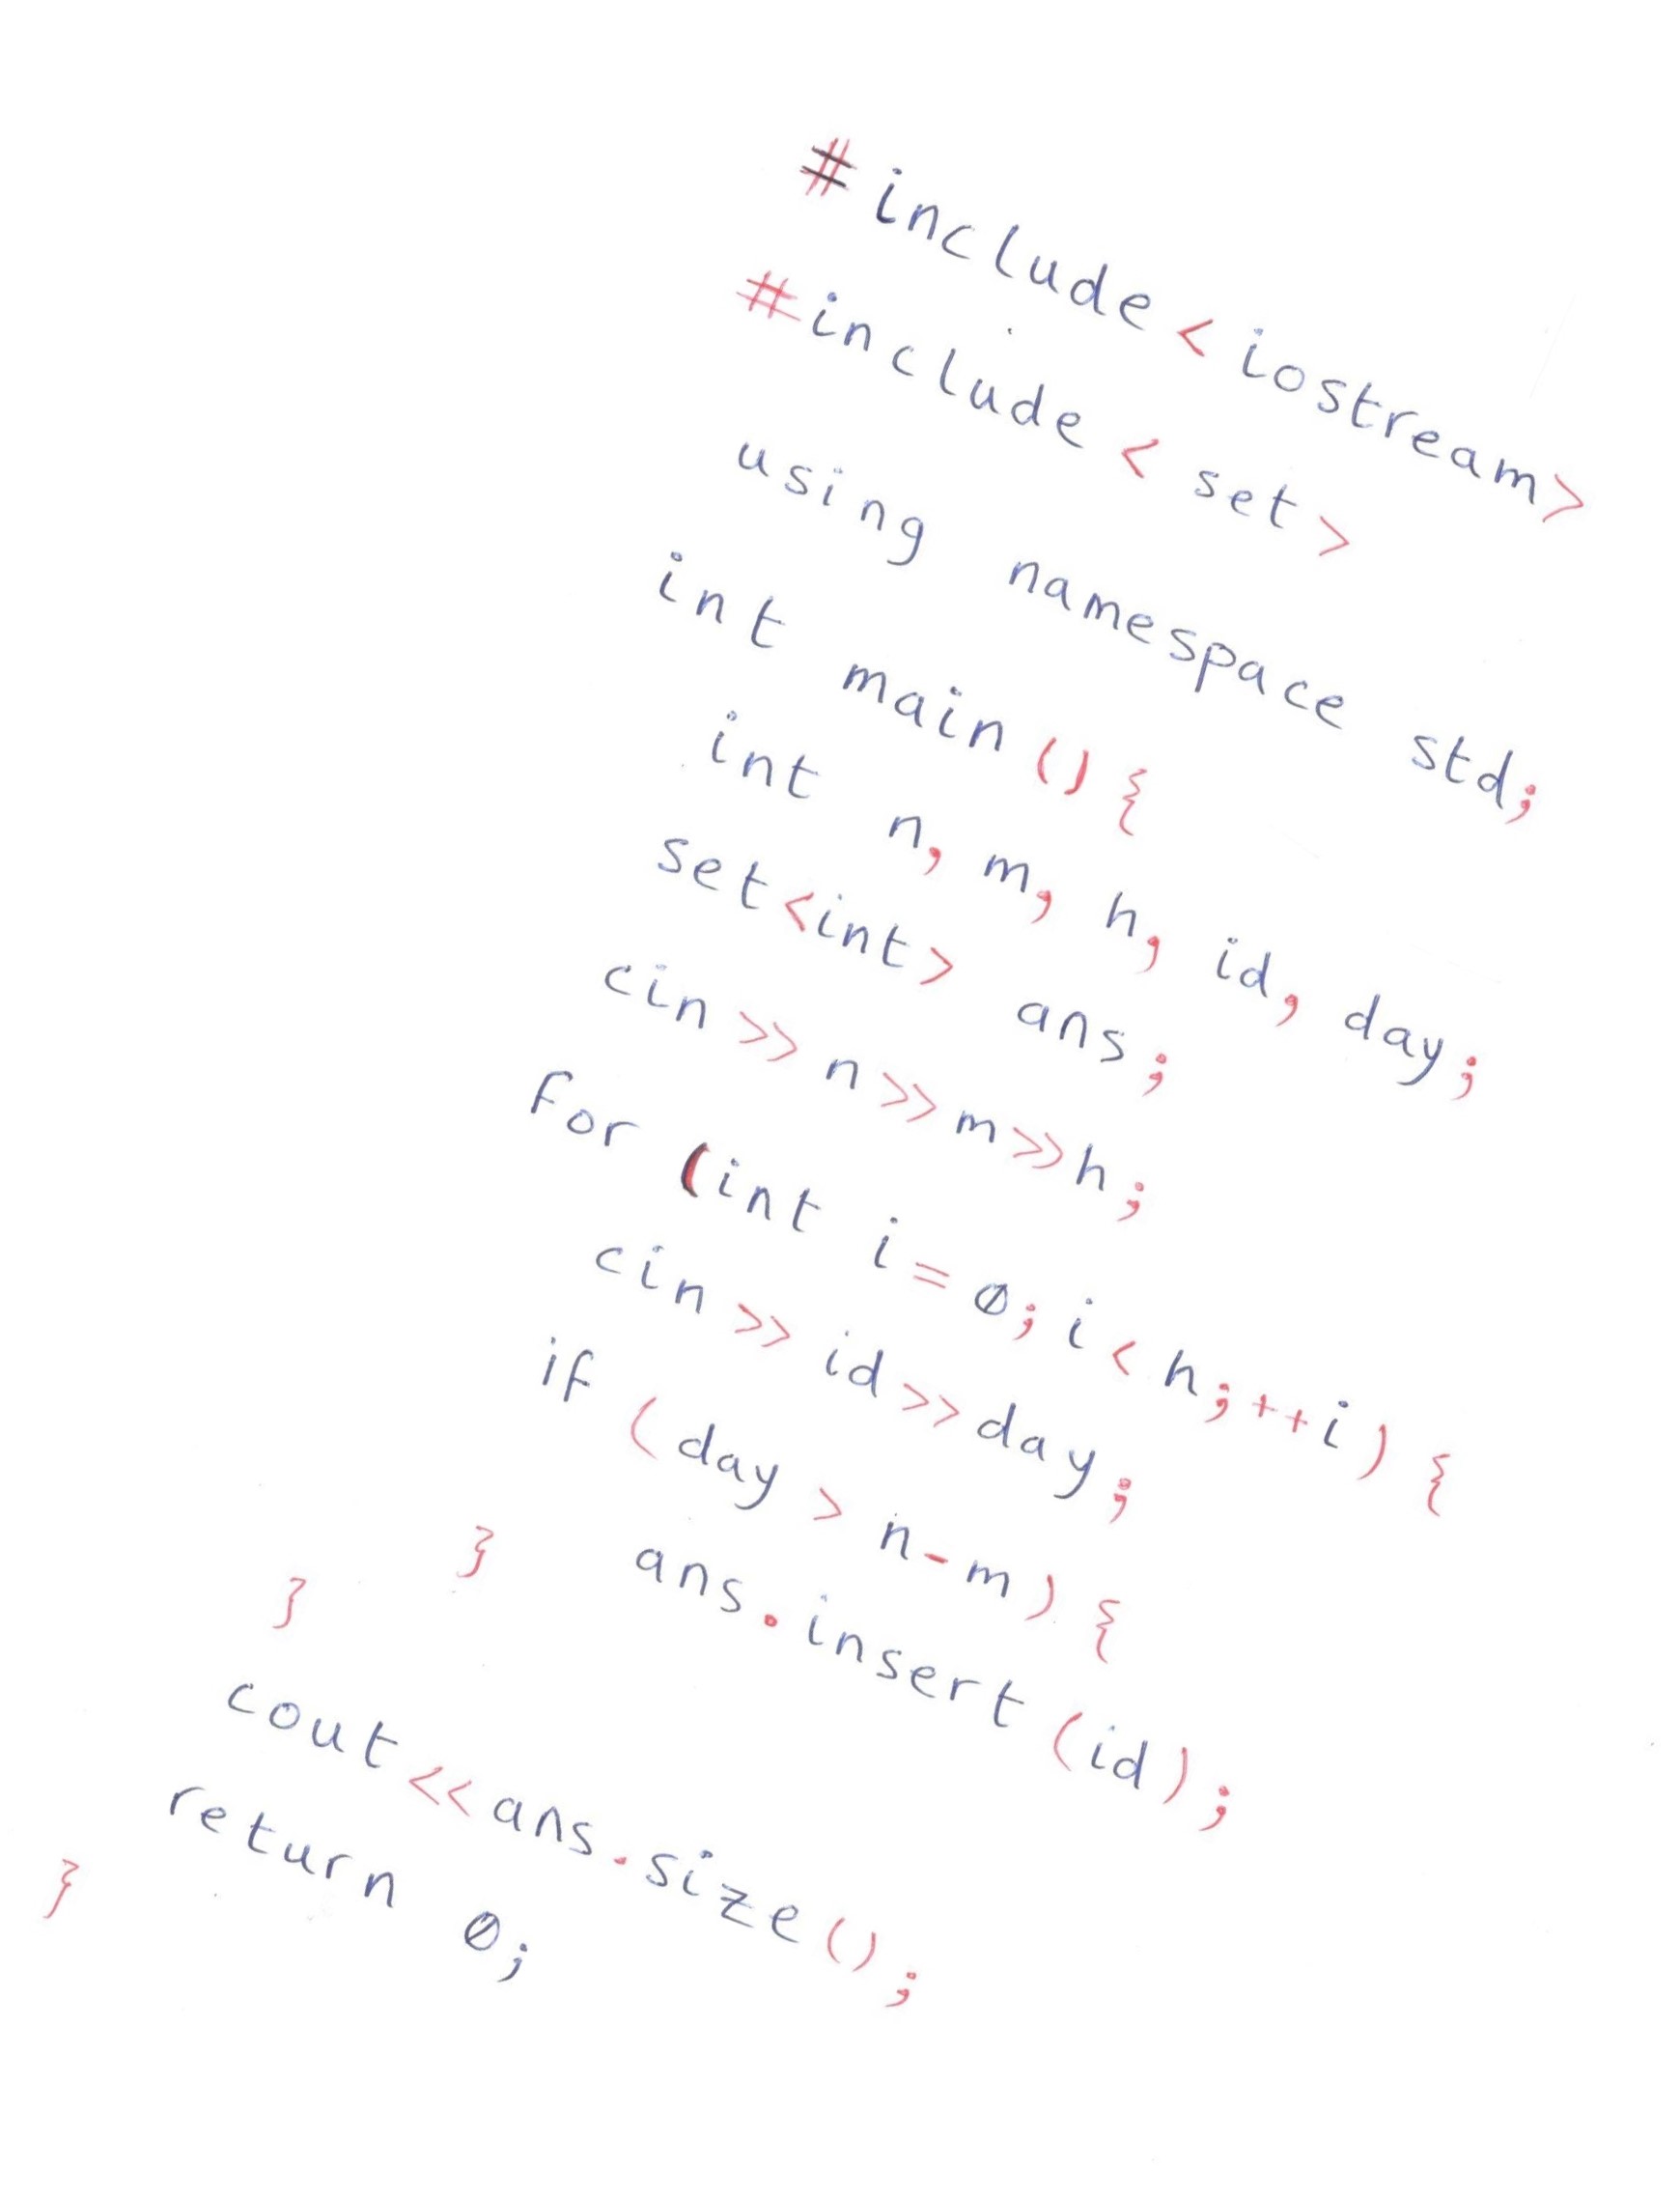 #include <iostream>
#include <set>
using namespace std;
int main () {
int n, m, h, id, day;
set<int> ans;
cin >> n >> m >> h;
for (int i = 0; i < h; ++i) {
cin >> id >> day;
if (day > n - m) {
ans.insert (id);
}
}
cout << ans.size ();
return 0;
}